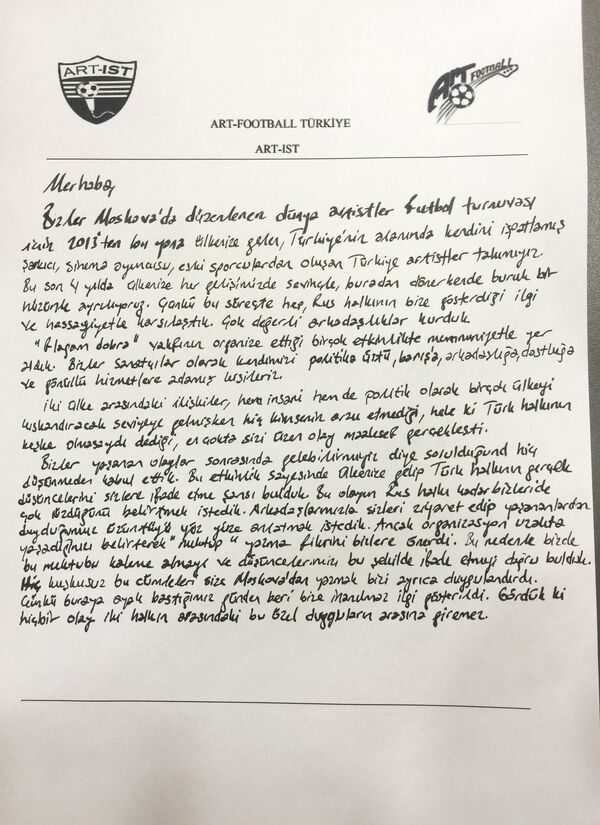 ART-IST
ART FOOTBALL
ART-FOOTBALL TÜRKİYE
ART-IST
Merhaba,
Bizler Moskova'da düzenlenen dünya artistler futbol turnuvası
için 2013'ten bu yana ülkenize gelen, Türkiye'nin alanında kendini ispatlamış
şarkıcı, sinema oyuncusu, eski sporculardan oluşan Türkiye artistler takımıyız.
Bu son 4 yılda ülkenize her gelişimizde sevinçle, buradan dönerkende buruk bir
hüzünle ayrılıyoruz. Çünkü bu süreçte hep, Rus halkının bize gösterdiği ilgi
ve hassasiyetle karşılaştık. Çok değerli arkadaşlıklar kurduk.
"Flagam dobra" vakfının organize ettiği birçok etkinlikte memnuniyetle yer
aldık. Bizler sanatçılar olarak kendimizi politika üstü, barışa, arkadaşlığa, dostluğa
ve gönüllü hizmetlere adamış kişileriz.
İki ülke arasındaki ilişkiler, hem insani hem de politik olarak birçok ülkeyi
kıskandıracak seviyeye gelmişken hiç kimsenin arzu etmediği, hele ki Türk halkının
keşke olmasaydı dediği, en çokta sizi üzen olay maalesef gerçekleşti.
Bizler yaşanan olaylar sonrasında gelebilirmiyiz diye sorulduğund hiç
düşünmeden kabul ettik. Bu etkinlik sayesinde ülkenize gelip Türk halkının gerçek
düşüncelerini sizlere ifade etme şansı bulduk. Bu olayın Rus halkı kadar bizleride
çok üzdüğünü belirtmek istedik. Arkadaşlarımızla sizleri ziyaret edip yaşananlardan
duyduğumuz üzüntüyü yüz yüze anlatmak istedik. Ancak organizasyon uzakta
yaşadığınızı belirterek "mektup" yazma fikrini bizlere önerdi. Bu nedenle bizde
bu mektubu kaleme almayı ve düşüncelerimizi bu şekilde ifade etmeyi doğru bulduk.
Hiç kuşkusuz bu cümleleri size Moskova'dan yazmak bizi ayrıca duygulandırdı.
Çünkü buraya ayak bastığımız günden beri bize inanılmaz ilgi gösterildi. Gördük ki
hiçbir olay iki halkın arasındaki bu özel duyguların arasına giremez.